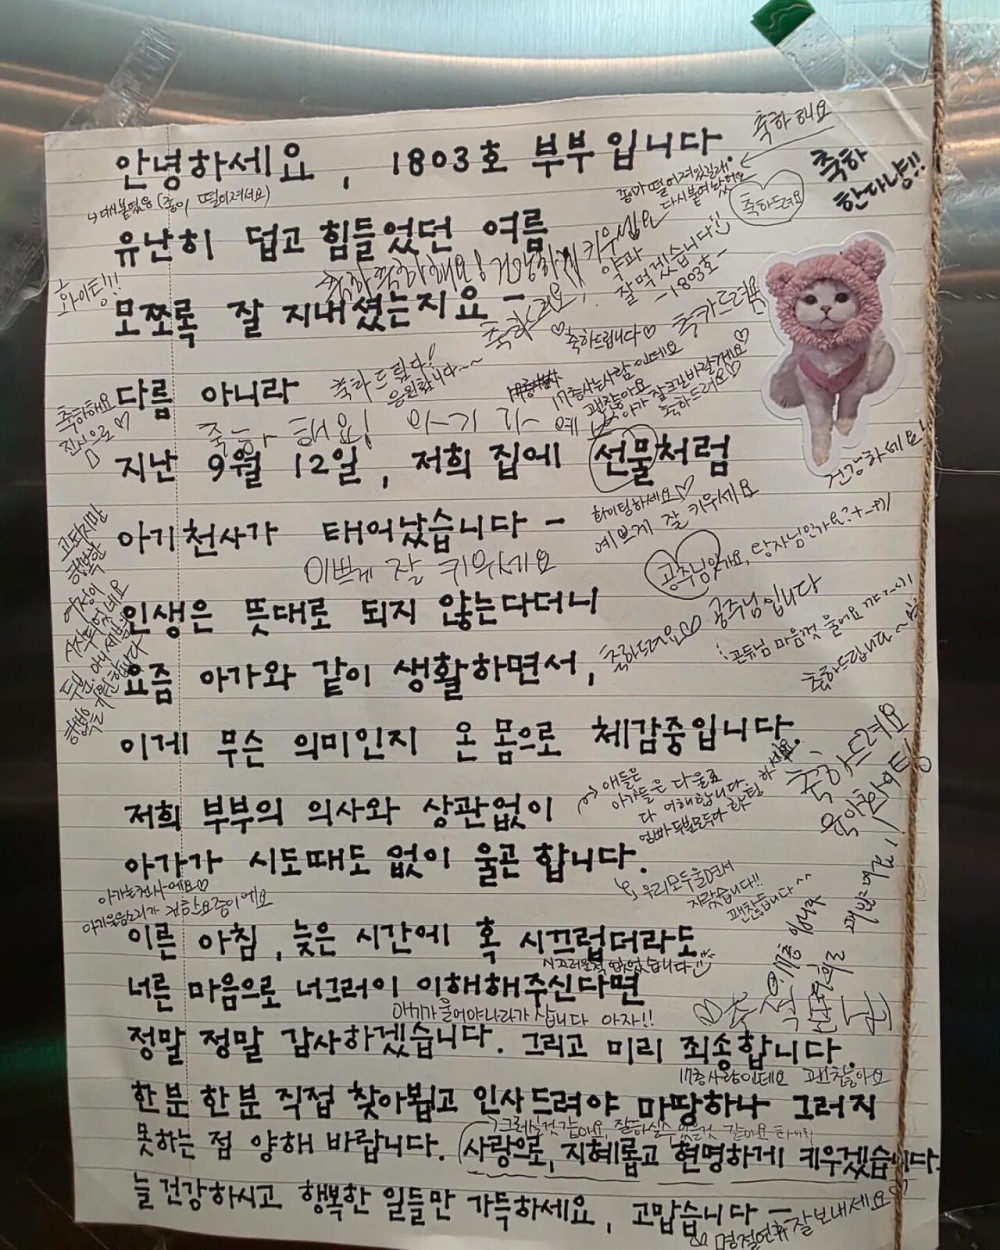 안녕하세요, 1803호 부부입니다
축하해요
축하
한다냥!!
종이 떨어져있길래
다시 붙여놨어요
축하드려요
유난히 덥고 힘들었던 여름
화이팅!!
모쪼록 잘 지내셨는지요 -
잘 먹겠습니다
-1803호-
축하드려요
♡축하드립니다♡
다름 아니라
축하드립니다!
응원합니다~~
17층사는사람인데요
괜찮아요
축하드려요♡
축하해요
진심으로♡
축하해요! 아기가
지난 9월 12일, 저희 집에 선물처럼
건강하세요!
아기천사가 태어났습니다 -
화이팅하세요♡
예쁘게 잘 키우세요
이쁘게 잘 키우세요
고되지만
행복한
여정이
시작되었네요
인생은 뜻대로 되지 않는다더니
축하드려요
공주님입니다
요즘 아가와 같이 생활하면서,
축하드립니다~
이게 무슨 의미인지 온 몸으로 체감중입니다.
축하드려요
육아화이팅!
저희 부부의 의사와 상관없이
애들은
아가들은 다 울죠
다 이해합니다
아가가 시도때도 없이 울곤 합니다.
우리모두울면서
자랐습니다!!
괜찮습니다^^
아가는천사에요♡
아가울음소리가 귀한요즘이에요
이른 아침, 늦은 시간에 혹 시끄럽더라도
시끄러운적 없었습니다
너른 마음으로 너그러이 이해해주신다면
아기가울어야나라가 삽니다 아자!!
정말 정말 감사하겠습니다. 그리고 미리 죄송합니다.
17층사람인데요 괜찮아요
한분 한분 직접 찾아뵙고 인사드려야 마땅하나 그러지
못하는 점 양해 바랍니다. 사랑으로, 지혜롭고 현명하게 키우겠습니다.
늘 건강하시고 행복한 일들만 가득하세요, 고맙습니다 -
명절연휴 잘보내세요